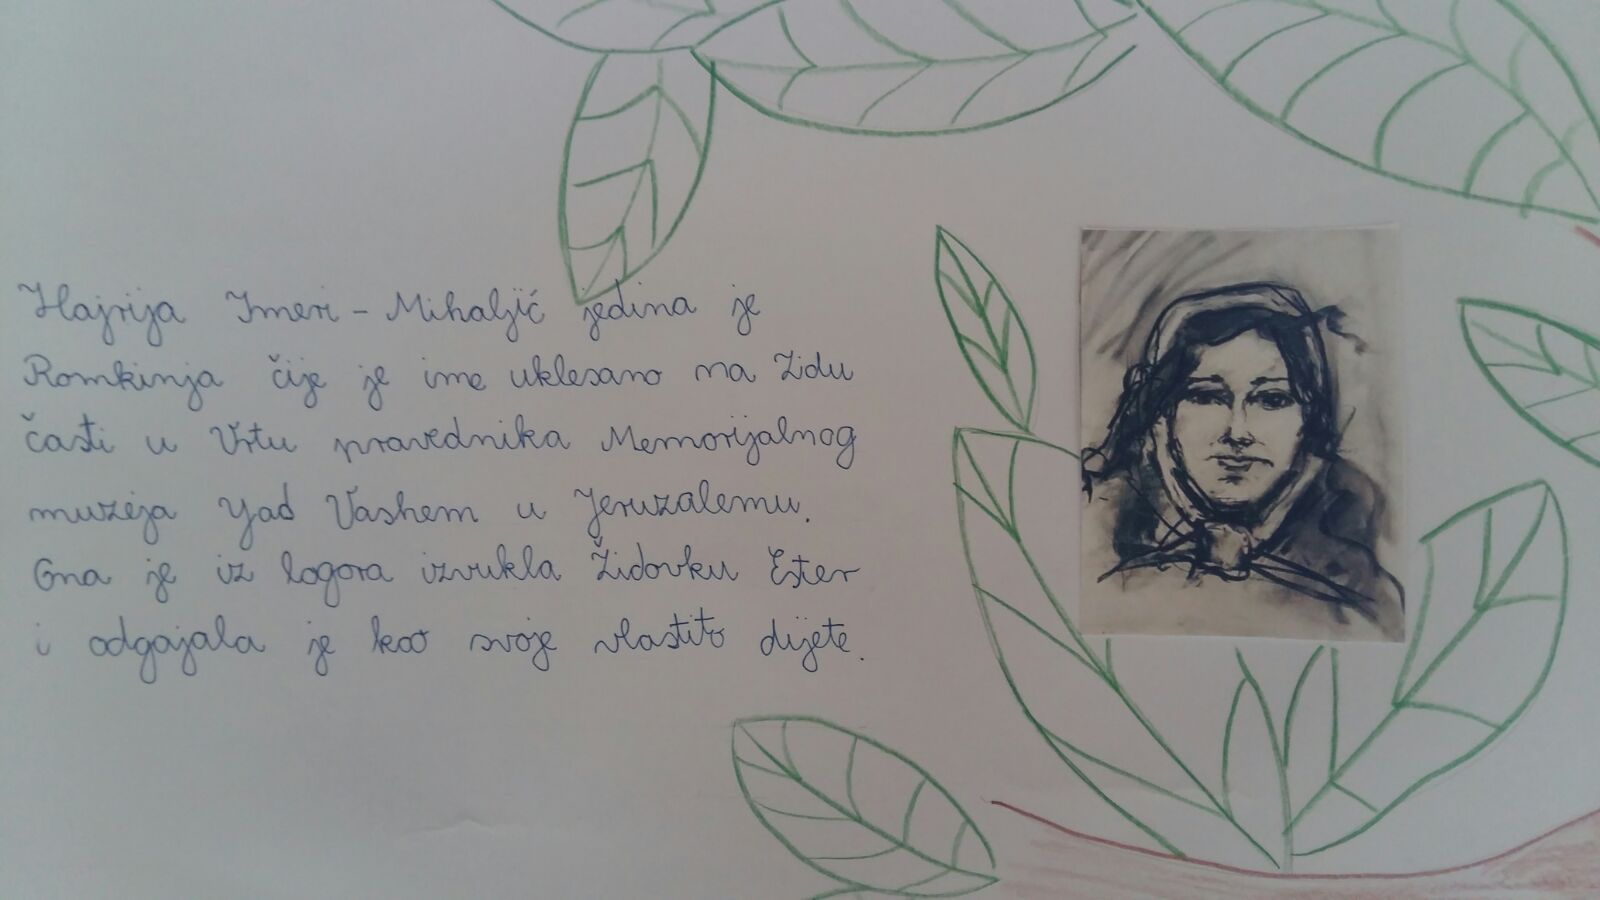 Hajrija Imeri - Mihaljić jedina je
Romkinja čije je ime uklesano na Zidu
časti u Vrtu pravednika Memorijalnog
muzeja Yad Vashem u Jeruzalemu.
Ona je iz logora izvukla Židovku Ester
i odgajala je kao svoje vlastito dijete.